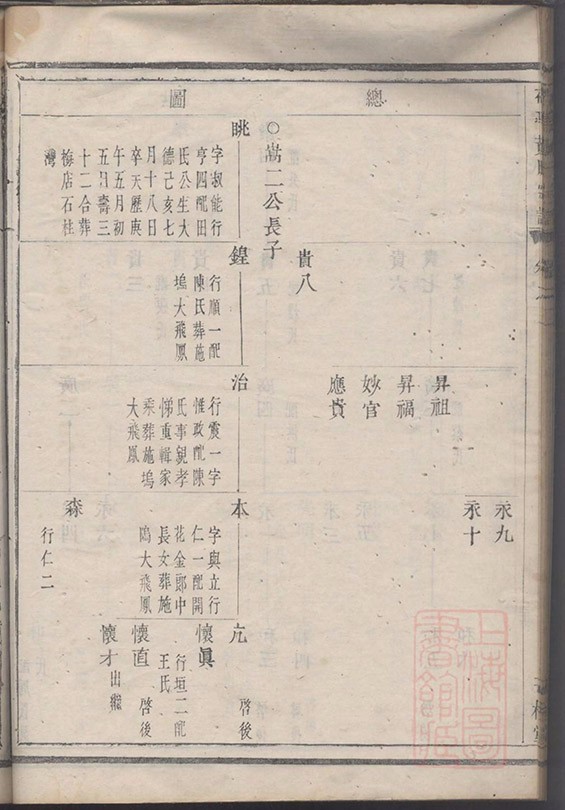 總圖
永九
永十
昇祖
昇福
妙官
應貴
貴八
○嵩二公長子
眺
字淑能行
亨四配田
氏公生大
德己亥七
月十八日
卒天歷庚
午五月初
五日壽三
十二合葬
梅店石柱
灣
鍠
行順一配
陳氏葬施
塢大飛鳳
治
行震一字
惟政配陳
氏事親孝
悌重輯家
乘葬施塢
大飛鳳
本
字與立行
仁一配開
花金郎中
長女葬施
塢大飛鳳
森
行仁二
亢
啓後
懷眞
行垣二配
王氏
懷直
啓後
懷才
出繼
上海圖書館藏